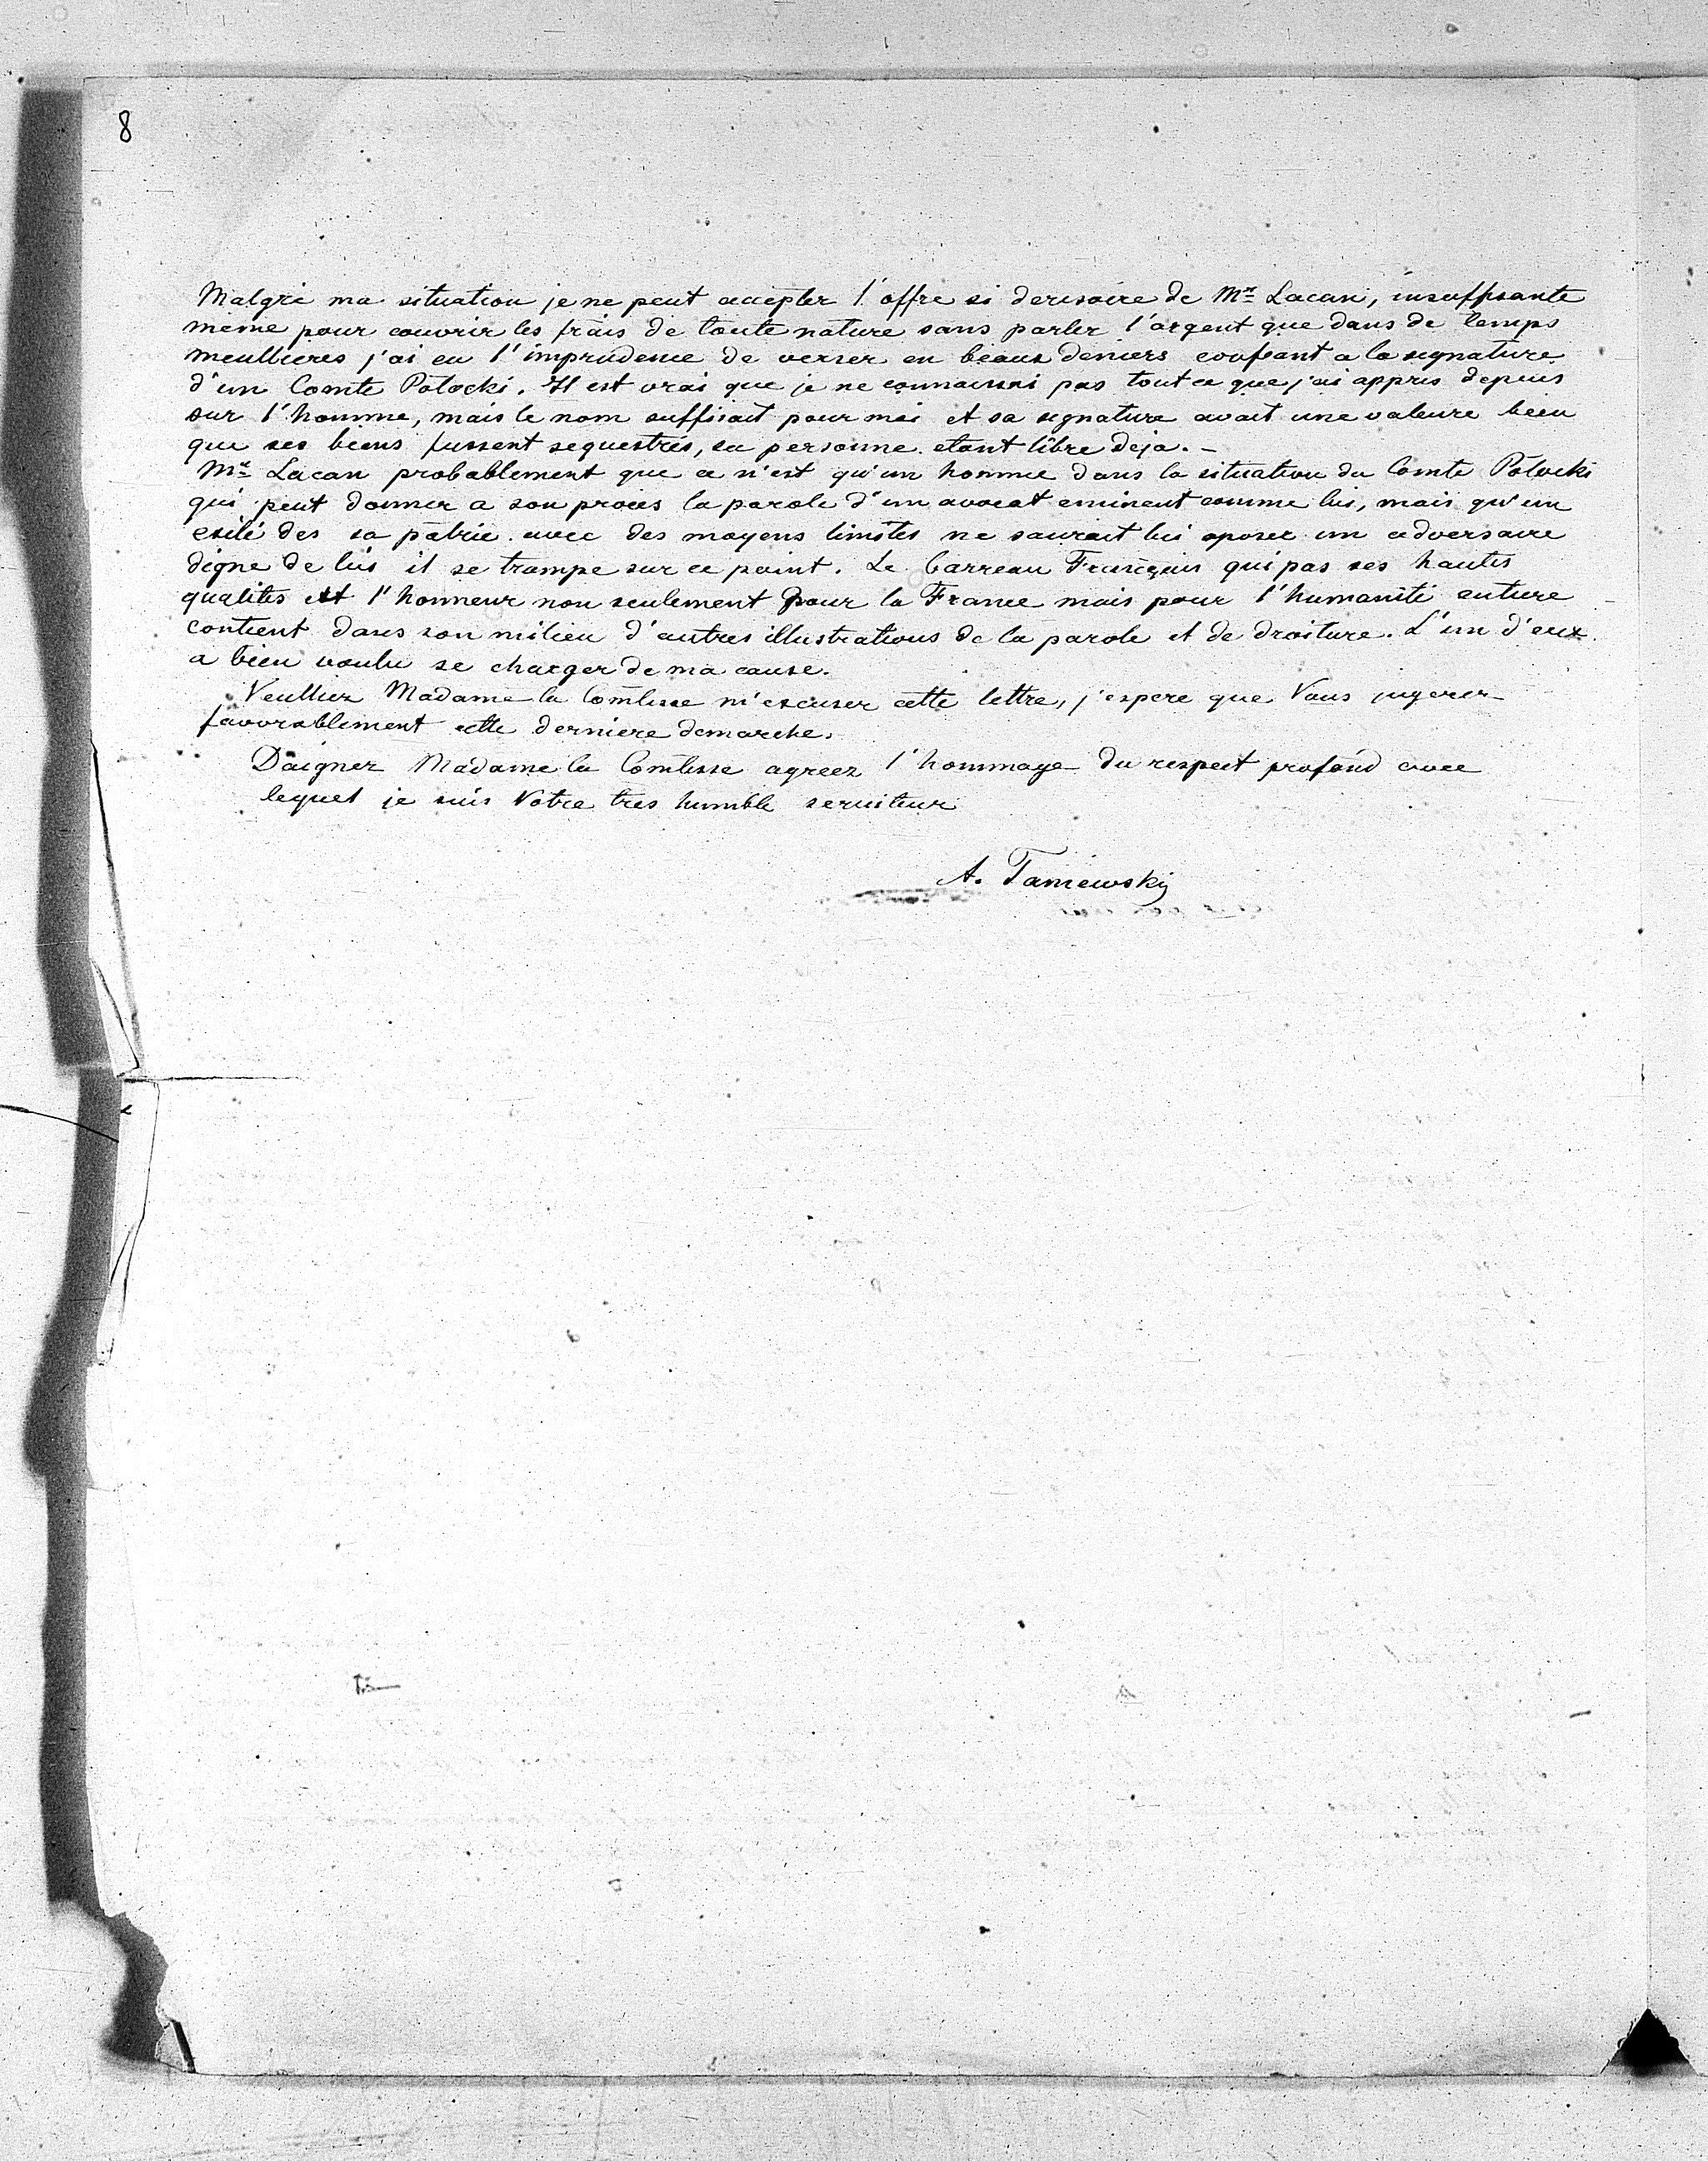 8
Malgré ma situation je ne peut accepter l'offre si derisoire de Mr Lacan, insuffisante
même pour couvrir les frais de toute nature sans parler l'argent que dans de temps
meullieres j'ai eu l'imprudence de verser en beaux deniers confiant a la signature
d'un Comte Potocki. Il est vrai que je ne connaissai pas tout ce que j'ai appris depuis
sur l'homme, mais le nom suffisait pour moi et sa signature avait une valeure bien
que ses biens fussent sequestrés, sa personne etant libre deja. –
Mr Lacan probablement que ce n'est qu'un homme dans la situation du Comte Potocki
qui peut donner a son proces la parole d'un avocat eminent comme lui, mais qu'un
exilé des sa patrie avec des moyens limités ne saurait lui oposer un adversaire
digne de lui il se trompe sur ce point. Le Barreau Français qui pas ses hautes
qualités est l'honneur non seulement pour la France mais pour l'humanité entiere
contient dans son milieu d'autres illustrations de la parole et de droiture. L'un d'eux
a bien voulu se charger de ma cause.
Veulliez Madame la Comtesse m'excuser cette lettre, j'espere que Vous jugerez
favorablement cette derniere demarche.
Daignez Madame la Comtesse agreez l'hommage du respect profond avec
lequel je suis Votre tres humble serviteur
A. Taniewski